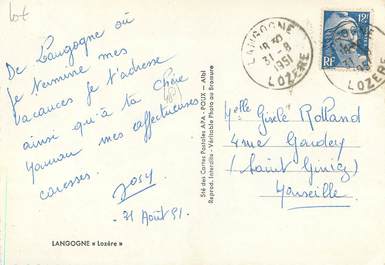 lot
De Langogne où
je termine mes
vacances je t'adresse
ainsi qu'à ta chère
Maman mes affectueuses
caresses.
Josy
31 Août 51.
LANGOGNE « Lozère »
Sté des Cartes Postales APA - POUX - Albi
Reprod. Interdite - Véritable Photo au Bromure
LANGOGNE
18 30
31-8
1951
LOZÈRE
12F
RF
Melle Gisèle Rolland
4 rue
(Saint Giniez)
Marseille